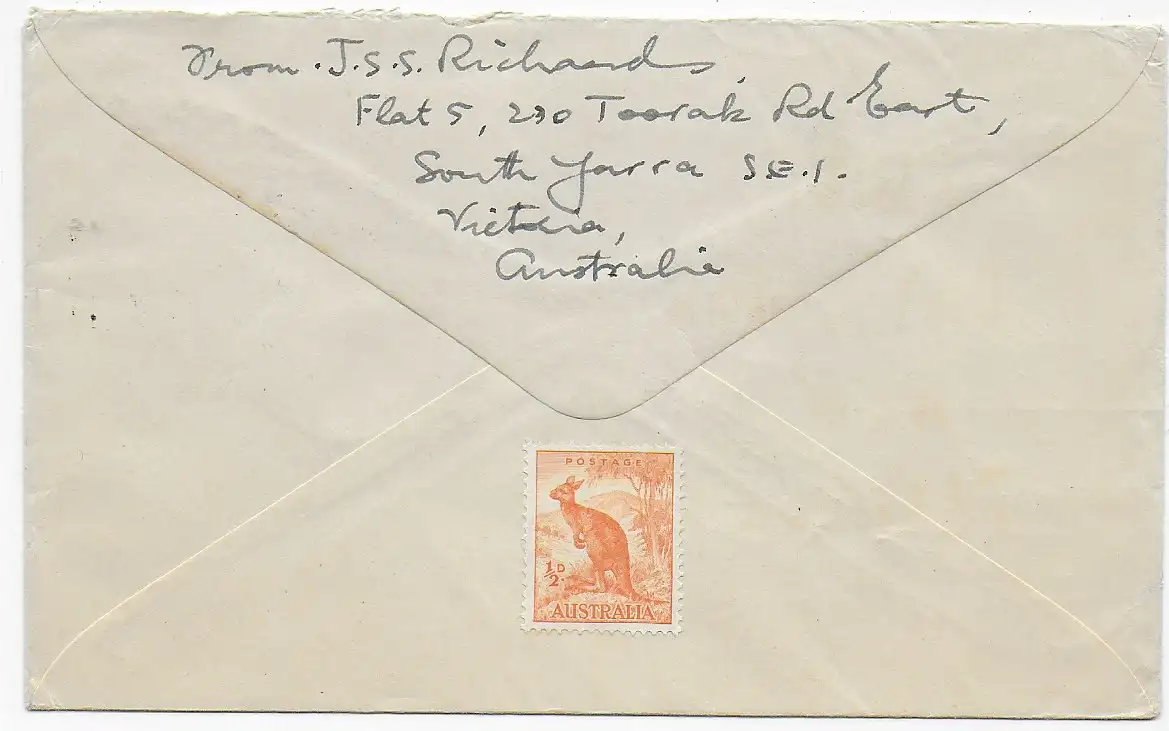 From. J.S.S. Richards,
Flat 5, 230 Toorak Rd East,
South Yarra S.E.1.
Victoria,
Australia
POSTAGE
½D.
AUSTRALIA